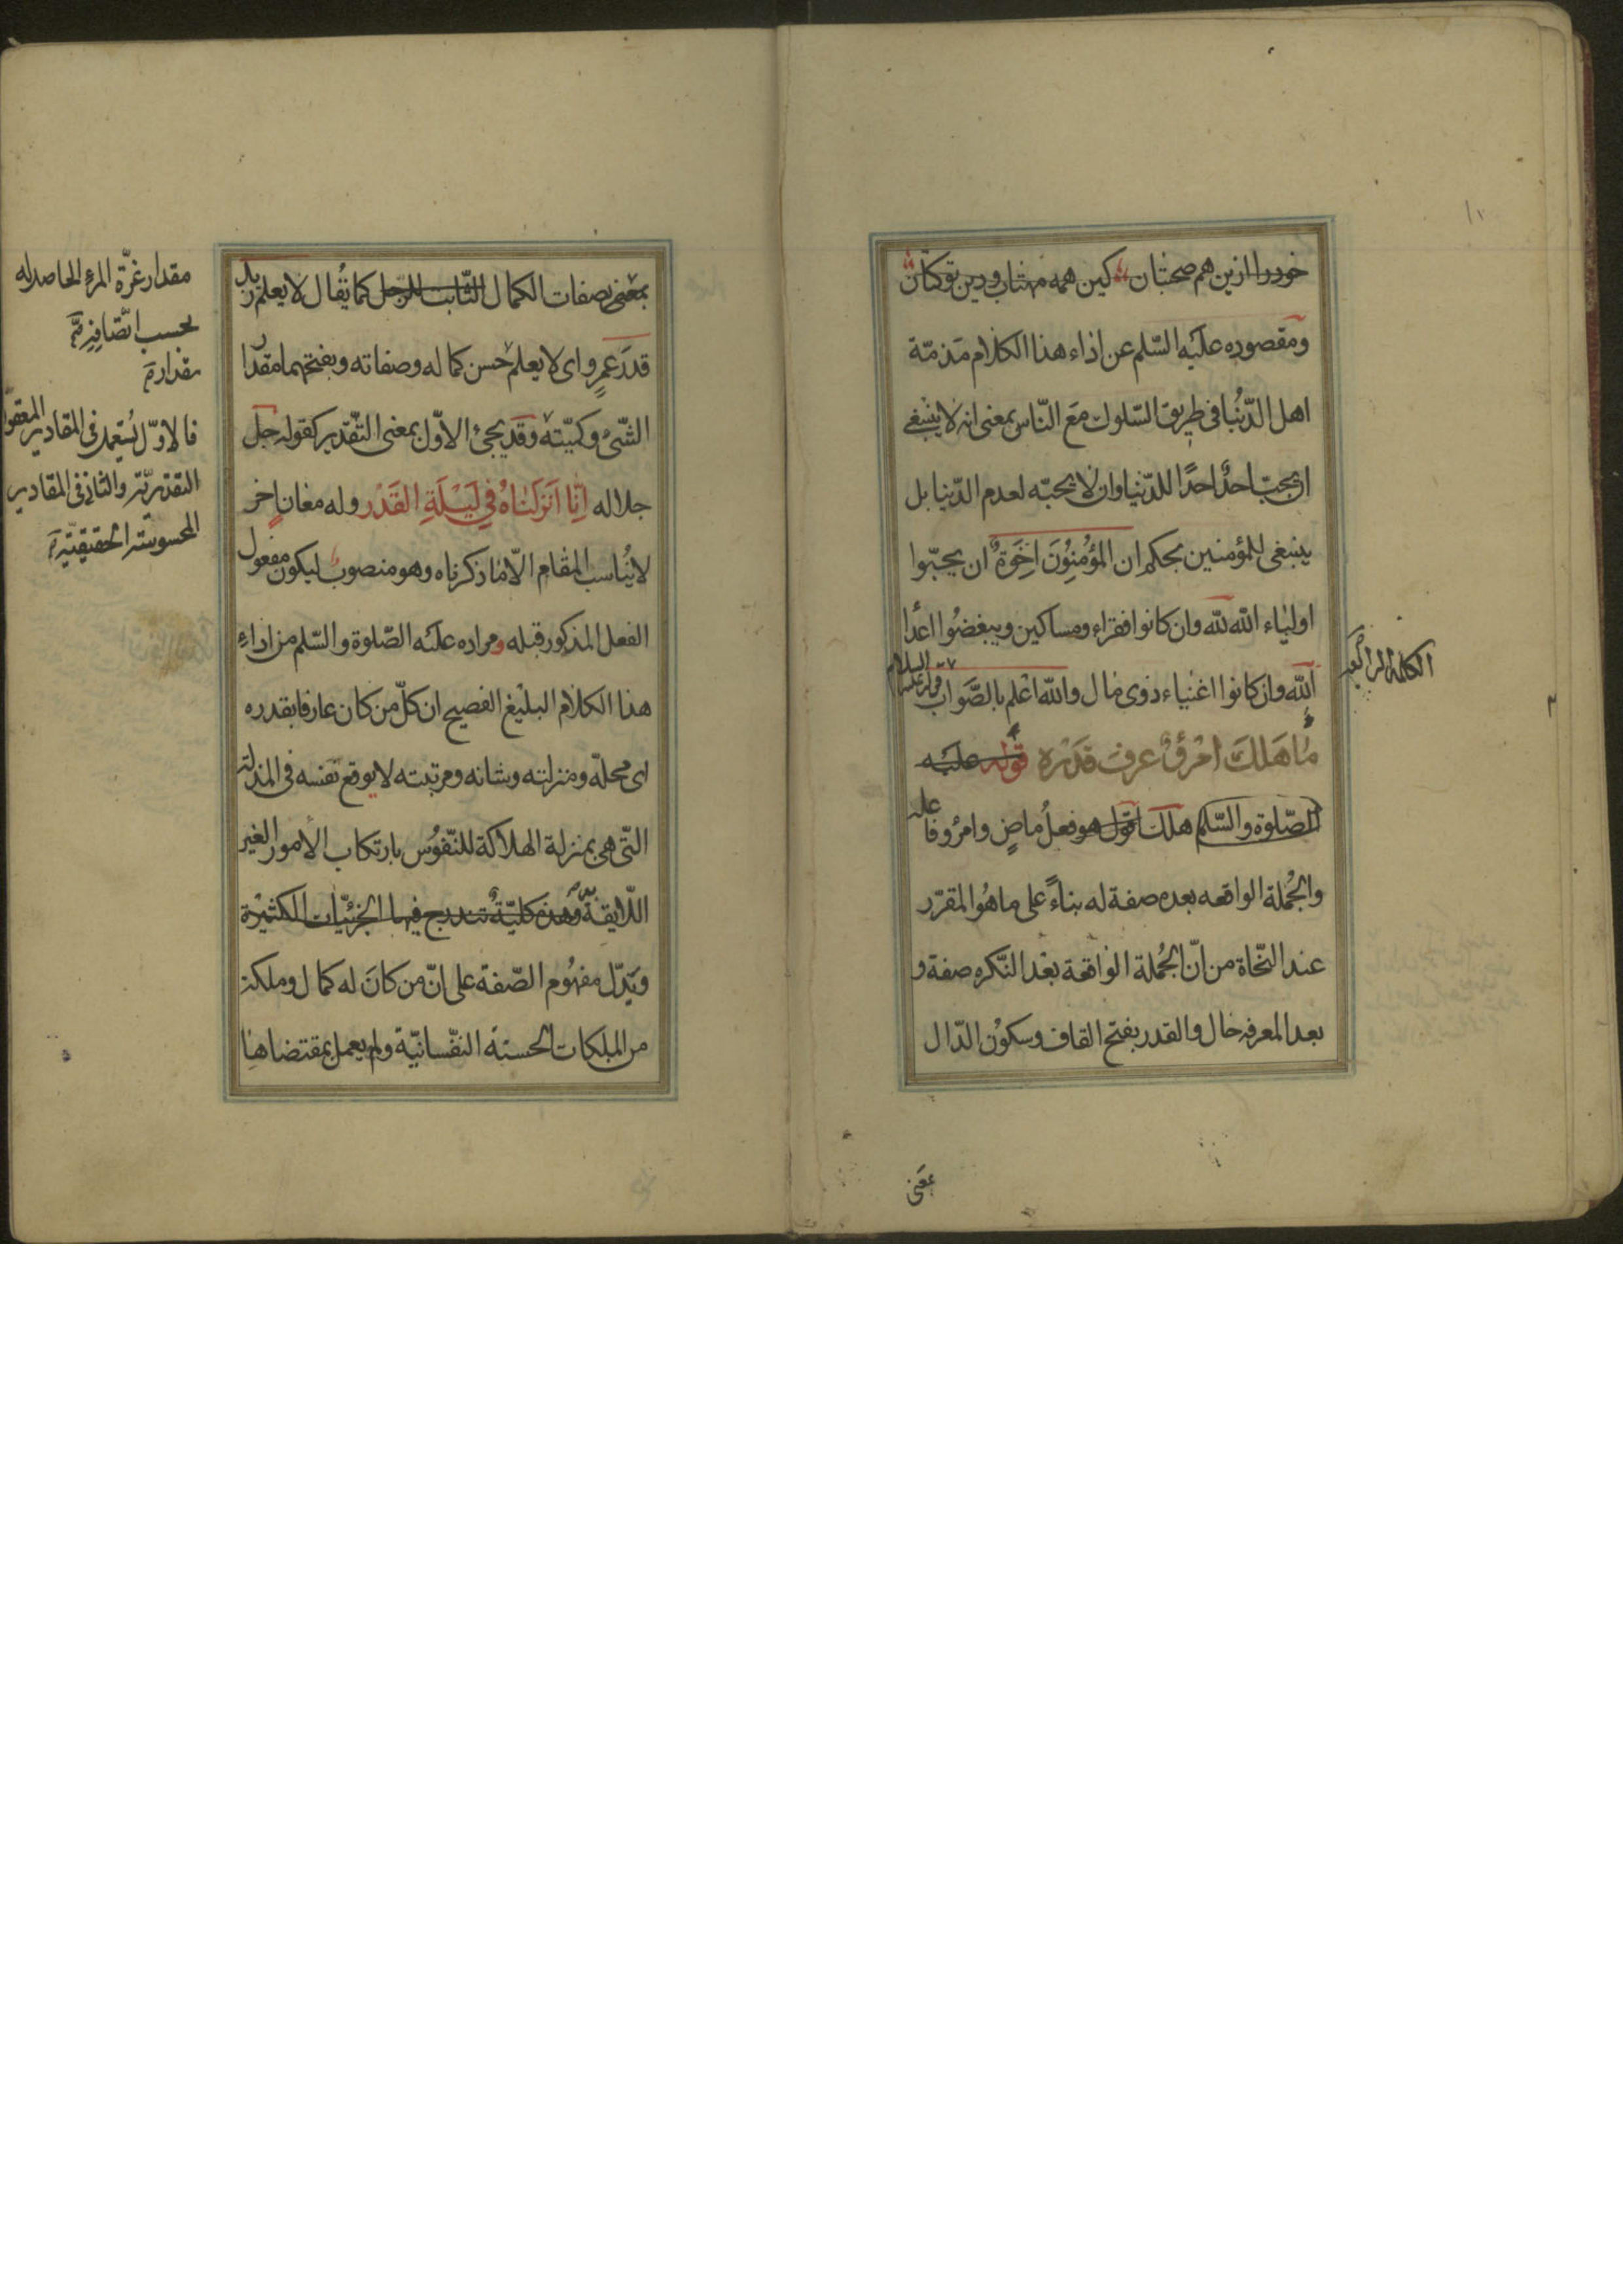 ١٠
خود را ازین هم صحبتان
کین همه
ومقصوده علیه السّلم عن اداء هذا الكلام مَذمّة
اهل الدّنيا فى طريق السّلوك مَعَ النّاس بمعنى انه لا ينبغى
ان يحبّ احدٌ احدًا للدّنيا وان لا يحبّه لعدم الدّنيا بل
ينبغى للمؤمنين بحكم ان المؤمنُونَ اِخَوَةٌ ان يحبّوا
اولياء الله لله وان كانوا فقراء ومساكين ويبغضُوا اعدا
الله وان كانوا اغنياء ذوى مال والله اعلم بالصَّواب قوله عليه السلام
مٰا هَلَكَ امْرؤٌ عرف قَدَرْه قوله عليه
الصّلوة والسّلم هلك اقول هو فعلُ ماضٍ وامرُؤ فاعله
والجُملة الواقعه بعده صفة له بناءً على ما هُو المقرّر
عند النّحاة من انّ الجُملة الواقعة بعْد النّكره صفة و
بعد المعرفه حال والقدر بفتح القاف وسكوُن الدّال
بمعنى
بمعنى صفات الكمال الثّابت للرّجل كما يُقال لا يعلم زيد
قدَرَ عمرٍو اى لا يعلم حسن كماله وصفاته وبفتحهما مقدار
الشّئ وكميّته وقد يجئ الاوّل بمعنى التّقدير كقوله جل
جلاله اِنّا اَنزلَناهُ فِي لَيْلَةِ القَدْر وله معانٍ اخر
لا يُناسب المقام الّا ما ذكرناه وهو منصوب ليكون مفعول
الفعل المذكور قبله ومراده عليه الصّلوة والسّلم من اداء
هذا الكلام البليْغ الفصيح ان كلّ من كان عارفا بقدره
اى محلّه ومنزلته وشانه ومرتبته لا يوقع نفسه فى المذلة
التّى هى بمنزلة الهلاكة للنّفوُس بارتكاب الأمور الغير
اللّايقة وهذه كليّةٌ تندرج فيها الجزئيّات الكثيْرة
ويَدّل مفهُوم الصّفة على انّ من كانَ له كمال وملكة
من الملكات الحسنة النفّسانيّة ولم يعمل بمقتضاها
مقدار عزّة المرء الحاصل له
بحسب
مقداره
فالاوّل يُستعمل فى المقادير
التقديريّة والثانى فى المقادير
المحسوسة الحقيقيّة